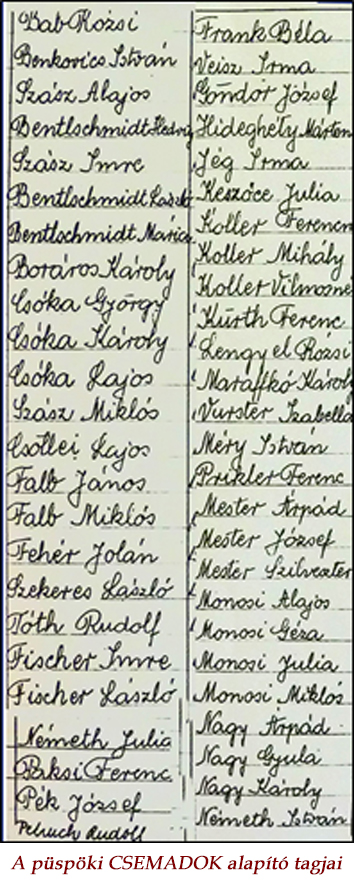 Bab Rózsi
Benkovics István
Szász Alajos
Bentlschmidt Hedvig
Szász Imre
Bentlschmidt László
Bentlschmidt Márica
Boráros Károly
Csóka György
Csóka Károly
Csóka Lajos
Szász Miklós
Csollei Lajos
Falb János
Falb Miklós
Fehér Jolán
Szekeres László
Tóth Rudolf
Fischer Imre
Fischer László
Németh Julia
Baksi Ferenc
Pék József
Pelnuch Rudolf
Frank Béla
Veisz Irma
Göndör József
Hideghéty Márton
Jég Irma
Keszőce Julia
Koller Ferenc
Koller Mihály
Koller Vilmosné
Kürth Ferenc
Lengyel Rózsi
Maraffkó Károly
Vurster Izabella
Méry István
Prikler Ferenc
Mester Árpád
Mester József
Mester Szilveszter
Monosi Alajos
Monosi Géza
Monosi Julia
Monosi Miklós
Nagy Árpád
Nagy Gyula
Nagy Károly
Németh István
A püspöki CSEMADOK alapító tagjai